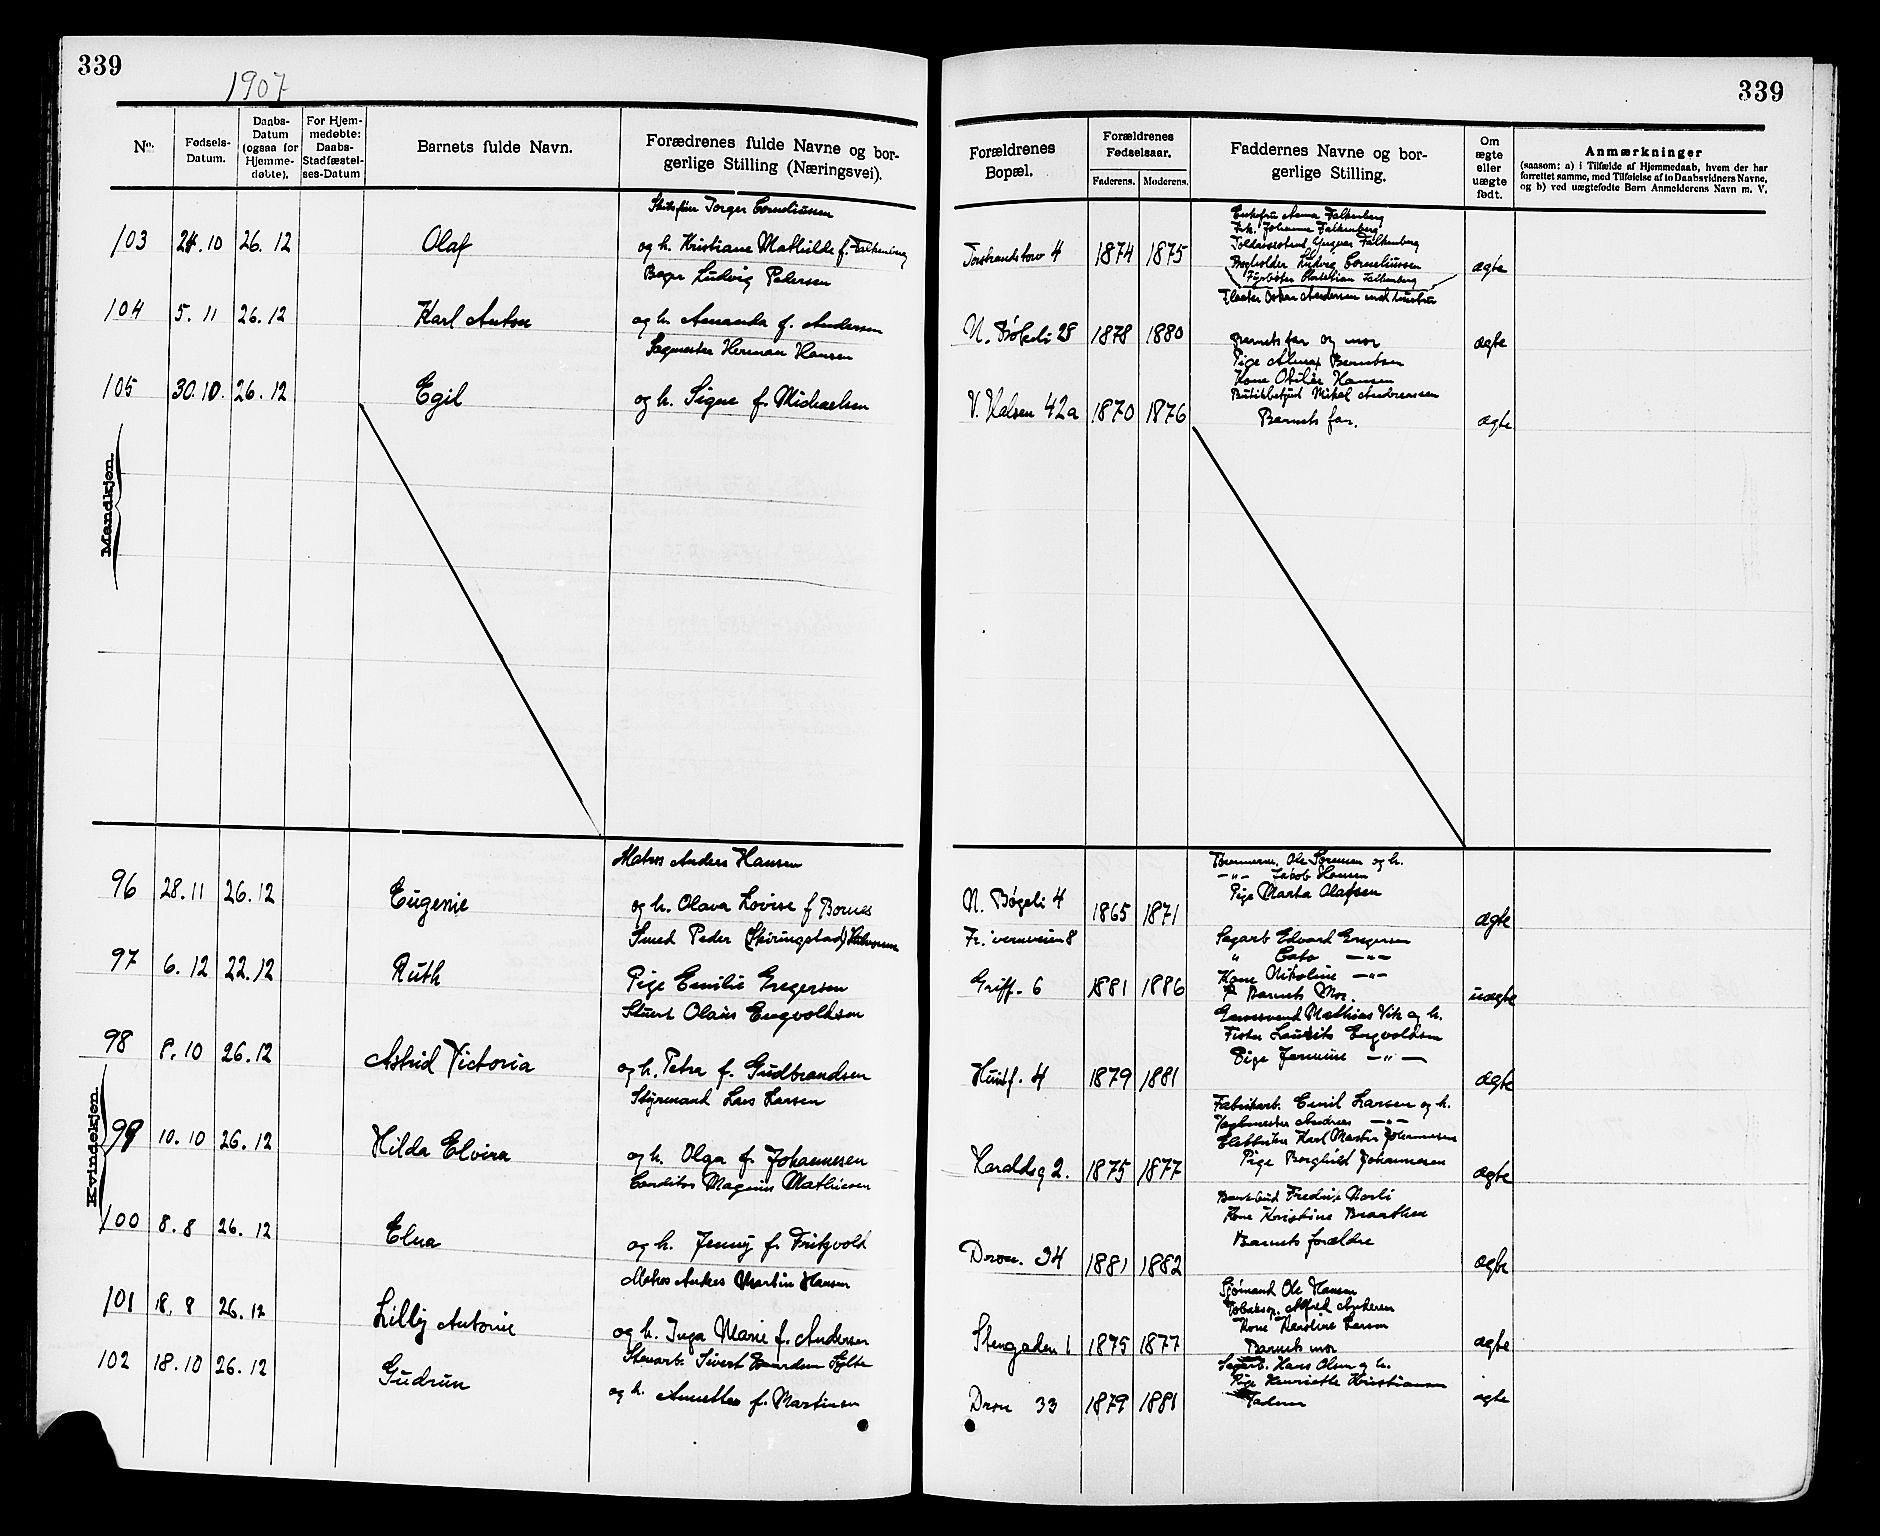 339
1907
No.
Fødsels-Datum.
Daabs-Datum (ogsaa for Hjemme-døbte).
For Hjem-medøbte: Daabs-Stadfæstel-ses-Datum
Barnets fulde Navn.
Forædrenes fulde Navne og bor-gerlige Stilling (Næringsvei).
Jørger Corneliussen
103 24.10 26.12 Olaf og h. Kristiane Mathilde f. Falkenberg
Bager Ludvig Pedersen
104 5.11 26.12 Karl Anton og h. Amanda f. Andersen
Sagmester Herman Hansen
105 30.10. 26.12 Egil og h. Signe f. Michaelsen
Mandkjøn.
Matros Anders Hansen
96 28.11 26.12 Eugenie og h. Olava Lovise f Bornes
Smed Peder (Skiringstad) Halvorsen
97 6.12 22.12 Ruth Pige Emilie Gregersen
Stuert Olaus Engvoldsen
98 8.10 26.12 Astrid Victoria og h. Petra f. Gudbrandsen
Styrmand Lars Larsen
99 10.10 26.12 Hilda Elvira og h. Olga f. Johannesen
Conditor Magnus Mathiesen
100 8.8 26.12 Elna og h. Jenny f. Fritzvold
Matros Anders Martin Hansen
101 18.8 26.12 Lilly Antonie og h. Inga Marie f. Andersen
Stenarb. Sivert Sylte
102 18.10 26.12 Gudrun og h. Annette f. Martinsen
Kvindekjøn.
339
Forældrenes Bopæl.
Forældrenes Fødselsaar.
Faderens. Moderens.
Faddernes Navne og bor-gerlige Stilling.
Om ægte eller uægte født.
Anmærkninger
(saasom: a) i Tilfælde af Hjemmedaab, hvem der har
forrettet samme, med Tilføielse af to Daabsvidners Navne,
og b) ved uægtefødte Børn Anmelderens Navn m. V.
Enkefru Anna Falkenberg
Frk. Johanne Falkenberg
Toldassistent Yngvar Falkenberg
Torstrandstorv 4 1874 1875 Bogholder Ludvig Corneliussen ægte
Christian Falkenberg
Oskar Andersen med hustru
N. Bøkeli 28 1878 1880 Barnets far og mor ægte
Pige Berntsen
Kone Otilie Hansen
Mikal Andreassen
V. Halsen 42a 1870 1876 Barnets far. ægte
Tømmerm. Ole Sørensen og h.
—"— Jakob Hansen
N. Bøgeli 4 1865 1871 Pige Marta Olafsen ægte
8
Sagarb Edvard Gregersen
" —"—
Kone Nikoline —"—
Griff. 6 1881 1886 Barnets Mor. uægte
Mathias Vik og h.
Laurits Engvoldsen
Huitf. 4 1879 1881 Pige —"— ægte
Fabrikarb. Emil Larsen og h.
Andreas —"—
Karl Martin Johannesen
Haraldsg 2. 1875 1877 Pige Borghild Johannesen ægte
Fredrik
Kone Kristine Braathen
Dron. 34 1881 1882 Barnets forældre ægte
Sjømand Ole Hansen
Alfred
Kone Karoline Larson
Stengaden 1 1875 1877 Barnets mor ægte
Sagarb. Hans Olsen og h.
Pige Henriette Kristiansen
Dron 33 1879 1881 Faderen ægte